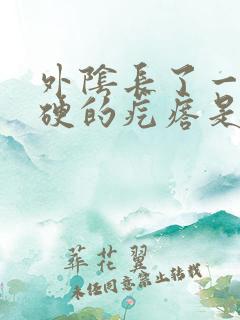 外陰長了一
硬的疙瘩是
華花翼
未经同意禁止转载